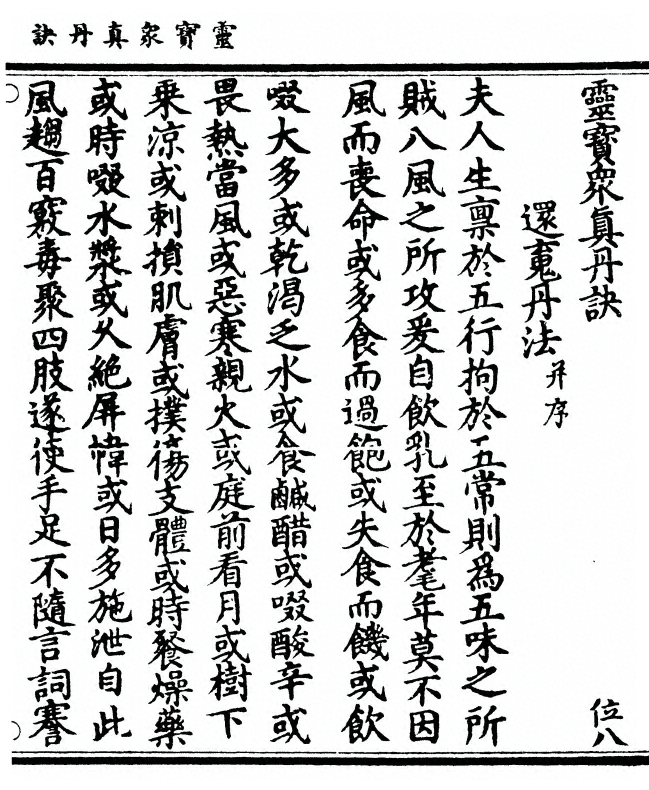 靈寶衆真丹訣
靈寶衆真丹訣
位八
還䰟丹法并序
夫人生禀於五行拘於五常則為五味之所
賊八風之所攻爰自飲乳至於耄年莫不因
風而喪命或多食而過飽或失食而饑或飲
啜大多或乾渴乏水或食鹹醋或啜酸辛或
畏熱當風或惡寒親火或庭前看月或樹下
乗涼或刺損肌膚或撲傷支體或時餐燥藥
或時啜水漿或久絶屏幃或日多施泄自此
風趨百竅毒聚四肢遂使手足不隨言詞謇